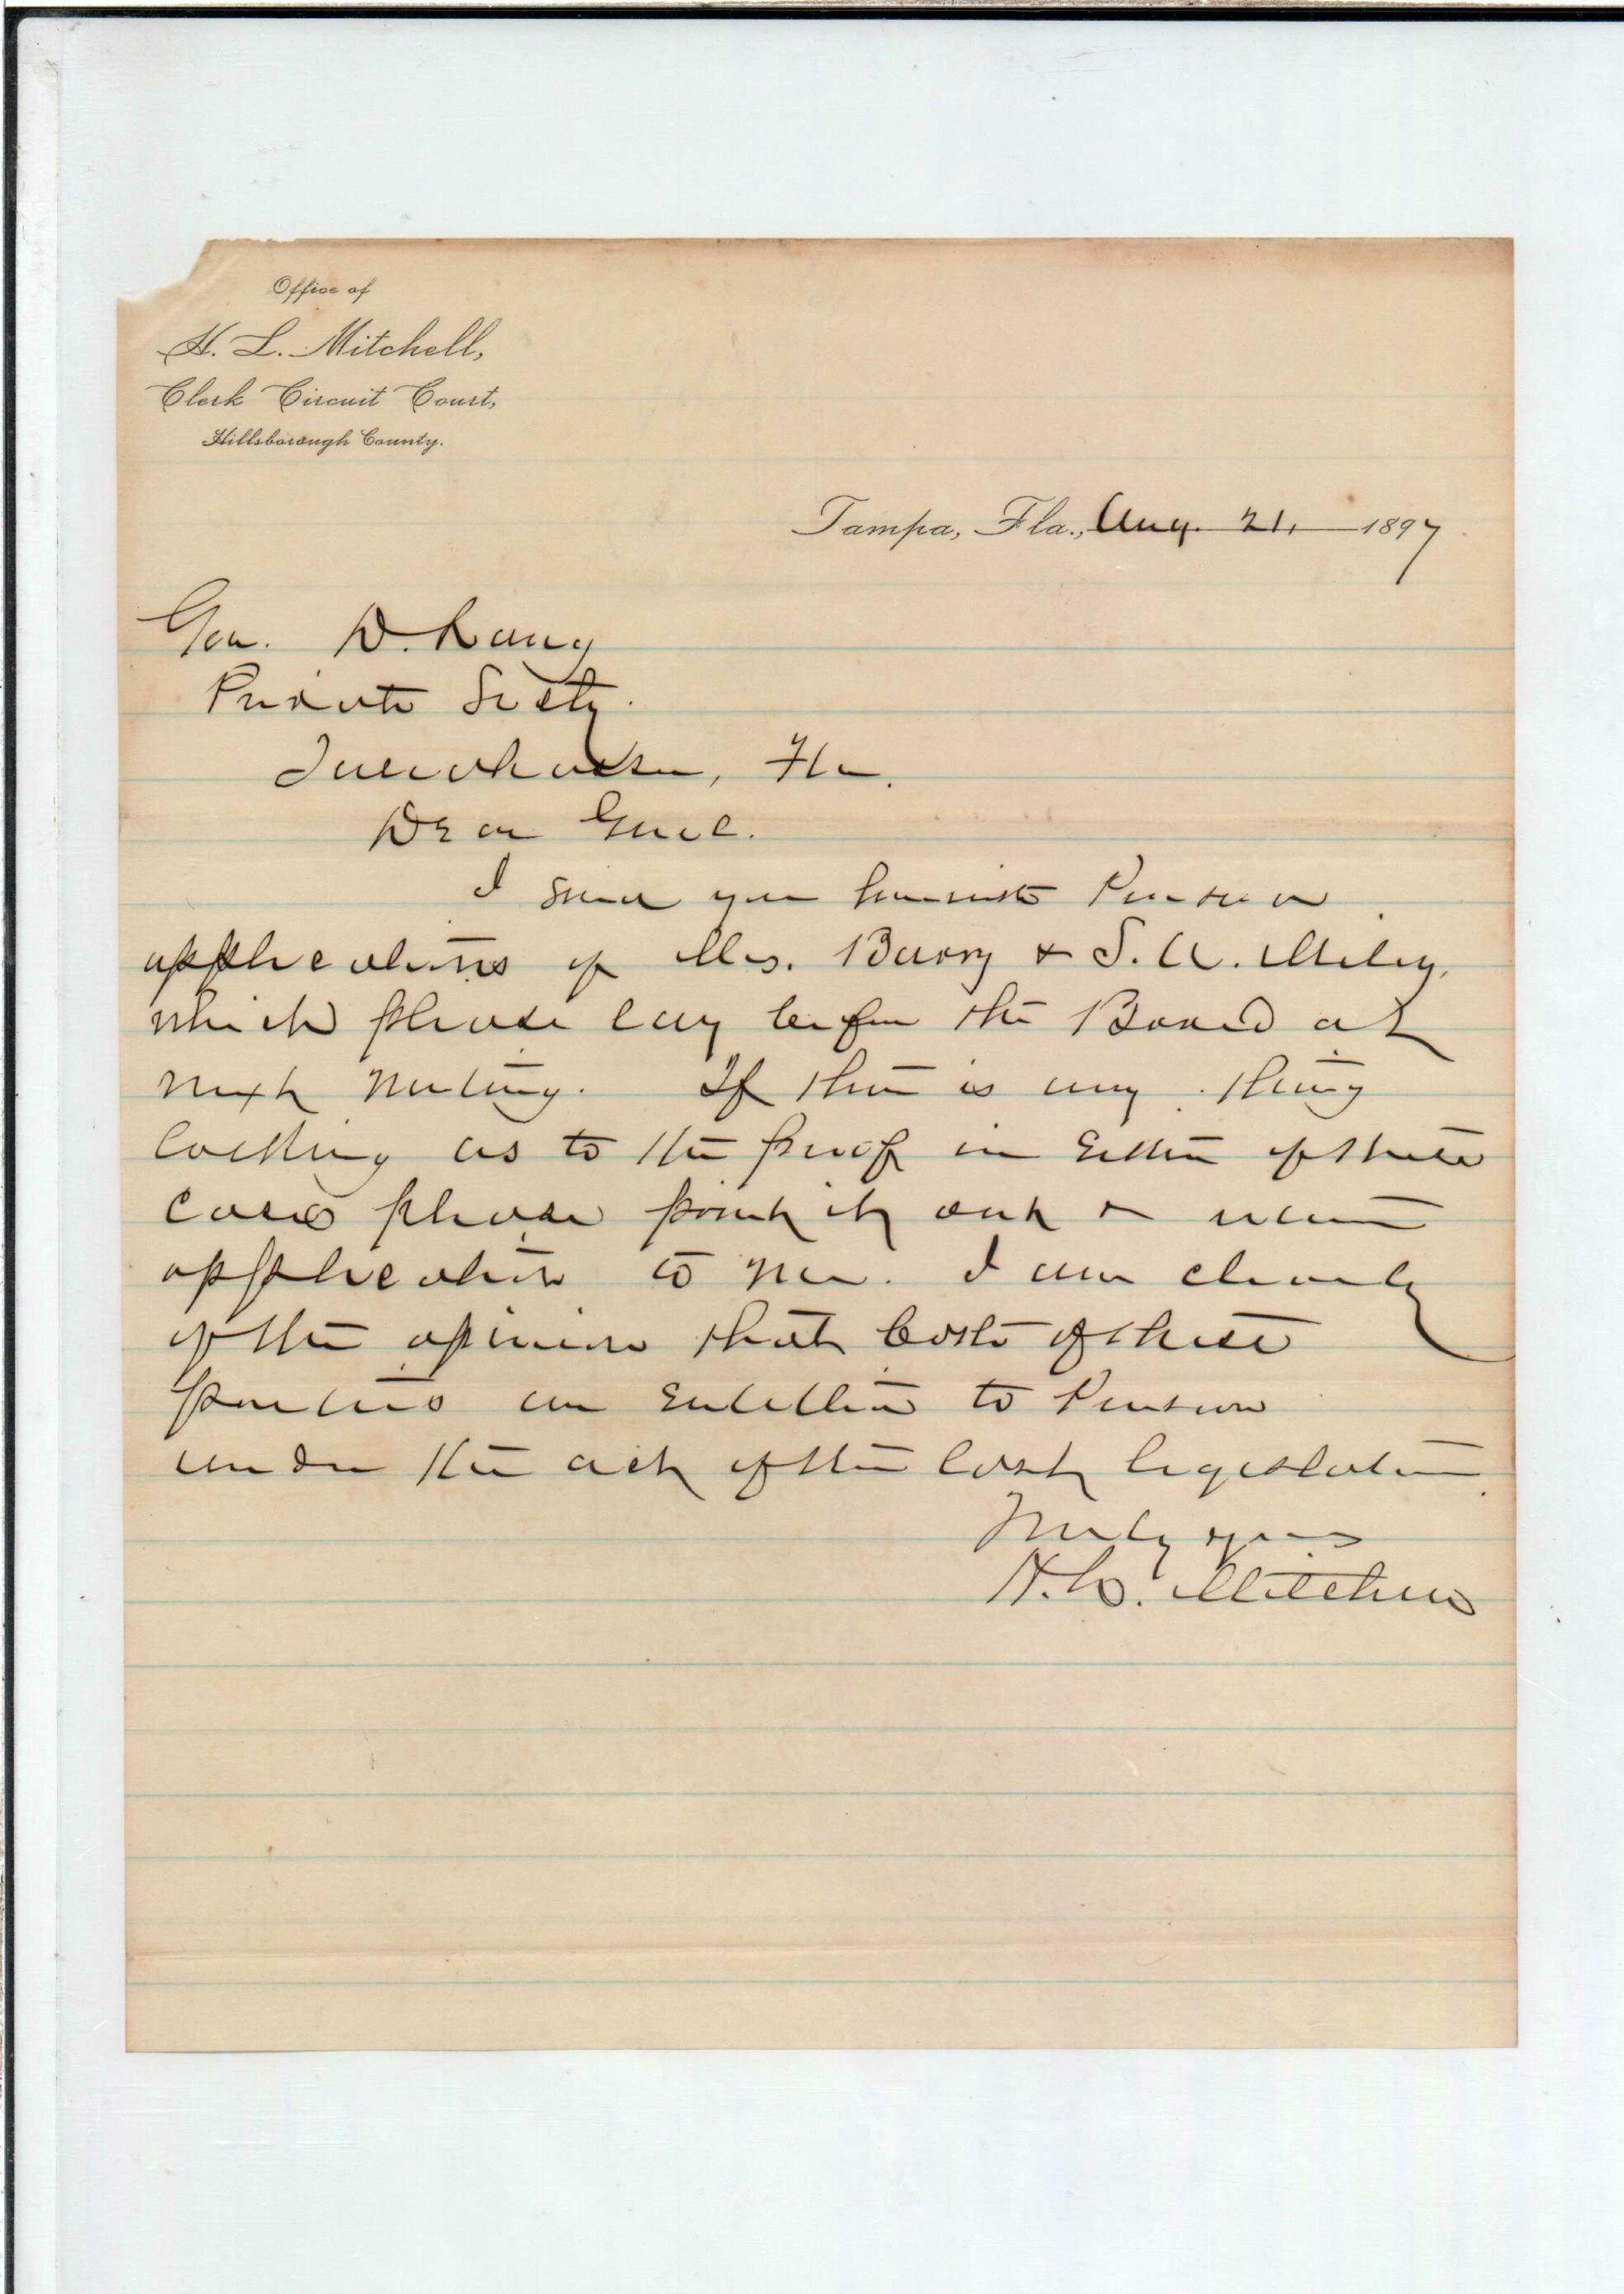 Office of
H. L. Mitchell,
Clerk Circuit Court,
Hillsborough County.
Tampa, Fla., Aug. 21, 1897
Gen. D. Lang
Private Secty.
Tallahassee, Fla.
Dear Genl.
I send you herewith Pension
applications of Mrs. Barry & S. A. Miley,
which please lay before the Board at
next meeting. If there is any thing
lacking as to the proof in either of these
cases please point it out & return
application to me. I am clearly
of the opinion that both of these
parties are entitled to Pension
under the act of the last legislature.
Truly yours
H. L. Mitchell